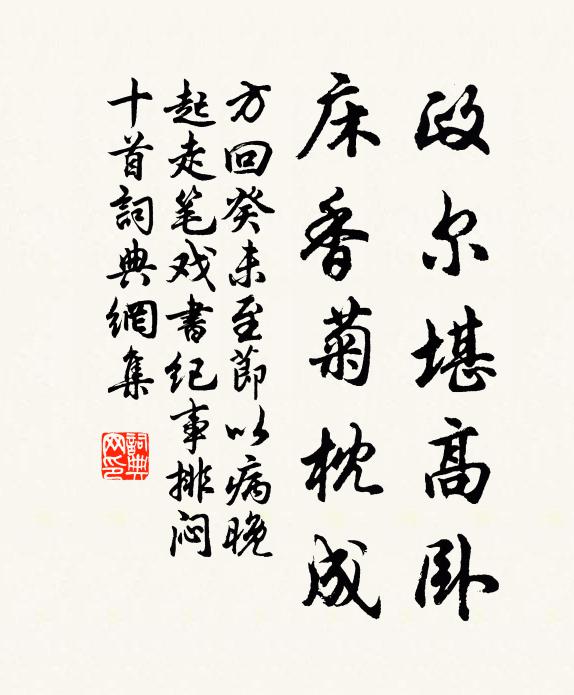 政尔堪高卧
床香菊枕成
方回癸未至節以病晚
起走笔戏書纪事排闷
十首詞典網集
詞典网印